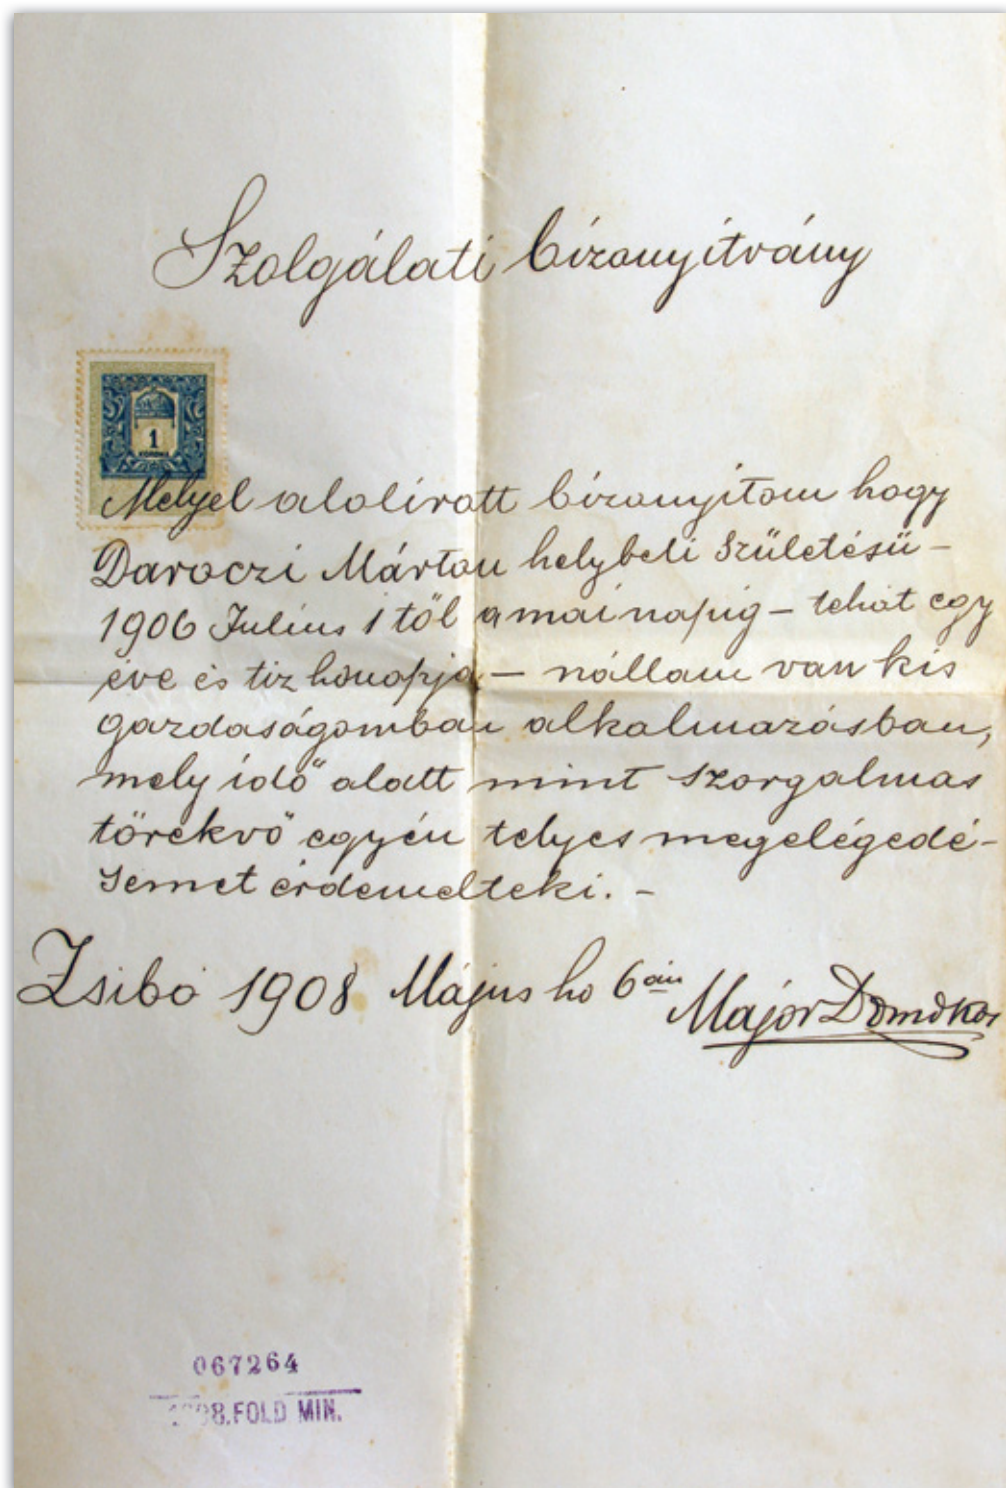 Szolgálati bizonyitvány
1
KORONA
Melyel alolirott bizonyitom hogy
Daroczi Márton helybeli születésü –
1906 Julius 1 től a mai napig – tehát egy
éve és tiz hónapja – nállam van kis
gazdaságomban alkalmazásban,
mely idő alatt mint szorgalmas
törekvő egyén telyes megelégedé-
semet érdemelteki. –
Zsibó 1908 Május hó 6án Májor Domokos
067264
1908.FOLD MIN.